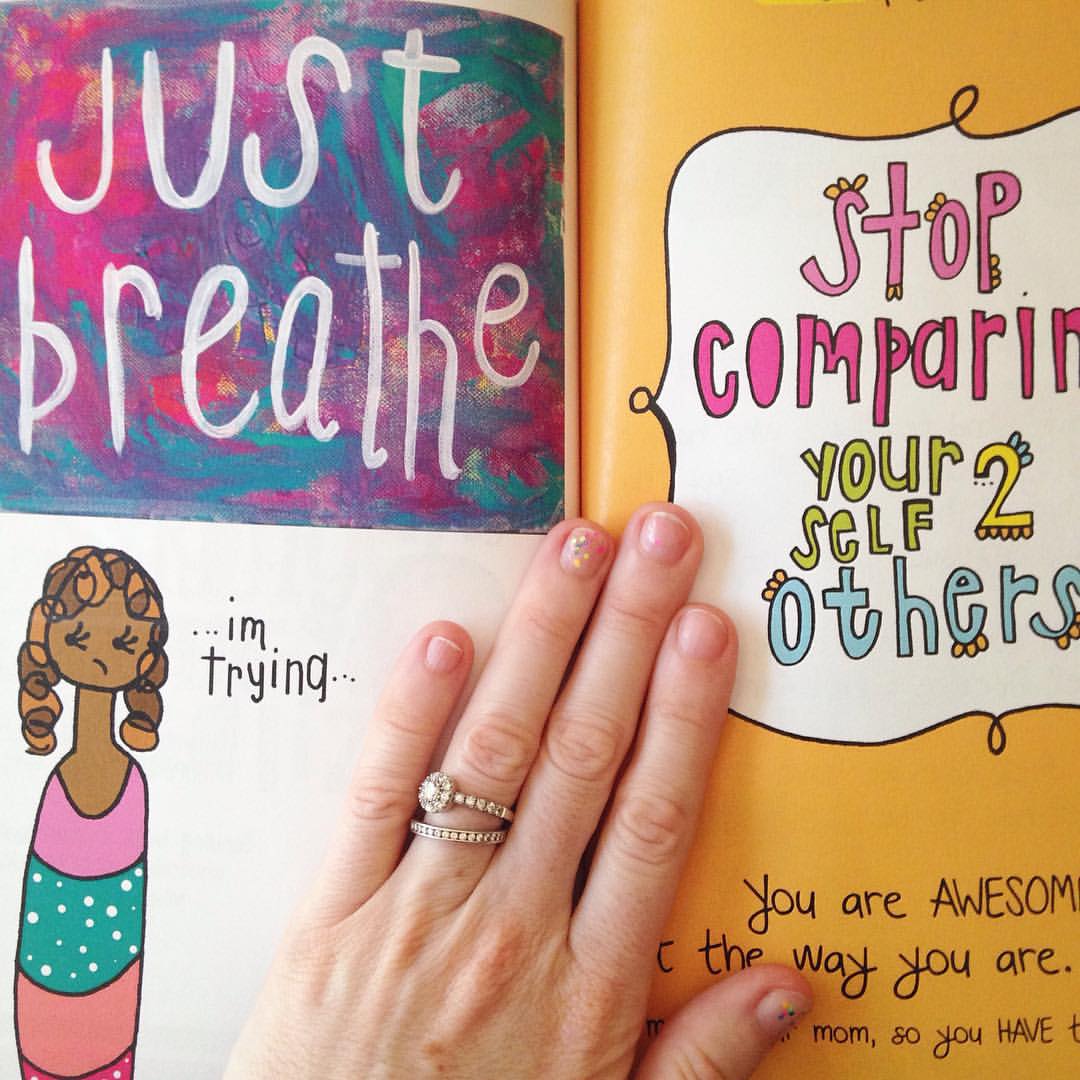 just
breathe
...im
trying...
stop
comparin
your
self 2
others
You are AWESOM
the way you are.
mom, so you HAVE t